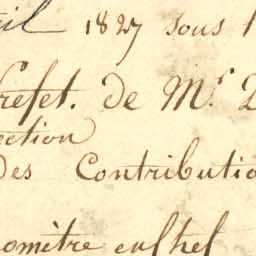 il 1827 sous l
refet. de Mr. D
ection
des Contributio
omètre en chef